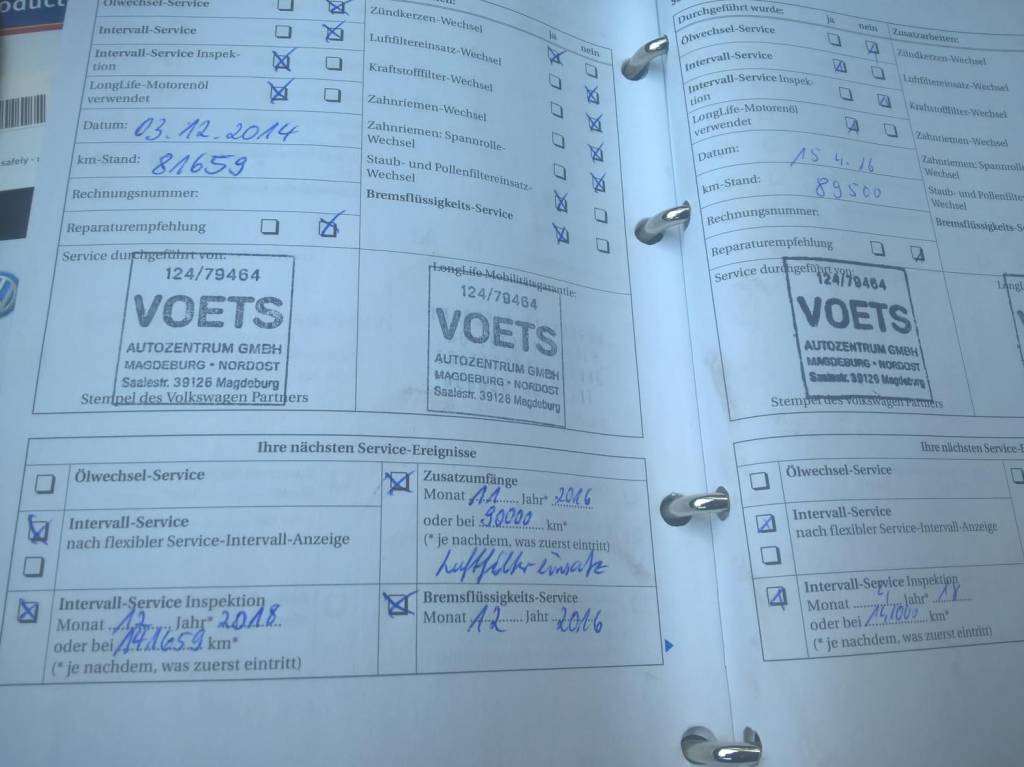 oduct
safely -
Ölwechsel-Service
Intervall-Service
Intervall-Service Inspek-
tion
LongLife-Motorenöl
verwendet
Datum: 03.12.2014
km-Stand: 81659
Rechnungsnummer:
Reparaturempfehlung
ja nein
Zündkerzen-Wechsel
Luftfiltereinsatz-Wechsel
Kraftstofffilter-Wechsel
Zahnriemen-Wechsel
Zahnriemen: Spannrolle-
Wechsel
Staub- und Pollenfiltereinsatz-
Wechsel
Bremsflüssigkeits-Service
Service durchgeführt von:
124/79464
VOETS
AUTOZENTRUM GMBH
MAGDEBURG • NORDOST
Saalestr. 39126 Magdeburg
Stempel des Volkswagen Partners
LongLife Mobilitätsgarantie:
124/79464
VOETS
AUTOZENTRUM GMBH
MAGDEBURG • NORDOST
Saalestr. 39126 Magdeburg
Ihre nächsten Service-Ereignisse
Ölwechsel-Service
Intervall-Service
nach flexibler Service-Intervall-Anzeige
Intervall-Service Inspektion
Monat 12 Jahr* 2018
oder bei 141659 km*
(* je nachdem, was zuerst eintritt)
Zusatzumfänge
Monat 11 Jahr* 2016
oder bei 90000 km*
(* je nachdem, was zuerst eintritt)
Luftfiltereinsatz
Bremsflüssigkeits-Service
Monat 12 Jahr 2016
Durchgeführt wurde:
ja nein
Ölwechsel-Service
Intervall-Service
Intervall-Service Inspek-
tion
LongLife-Motorenöl
verwendet
Datum: 15 4.16
km-Stand: 89500
Rechnungsnummer:
Reparaturempfehlung
Zusatzarbeiten:
Zündkerzen-Wechsel
Luftfiltereinsatz-Wechsel
Kraftstofffilter-Wechsel
Zahnriemen-Wechsel
Zahnriemen: Spannrolle
Wechsel
Staub- und Pollenfiltereinsatz
Wechsel
Bremsflüssigkeits-Se
Service durchgeführt von:
124/79464
VOETS
AUTOZENTRUM GMBH
MAGDEBURG • NORDOST
Saalestr. 39126 Magdeburg
Stempel des Volkswagen Partners
Ihre nächsten Service-E
Ölwechsel-Service
Intervall-Service
nach flexibler Service-Intervall-Anzeige
Intervall-Service Inspektion
Monat 4 Jahr* 18
oder bei 141000 km*
(* je nachdem, was zuerst eintritt)